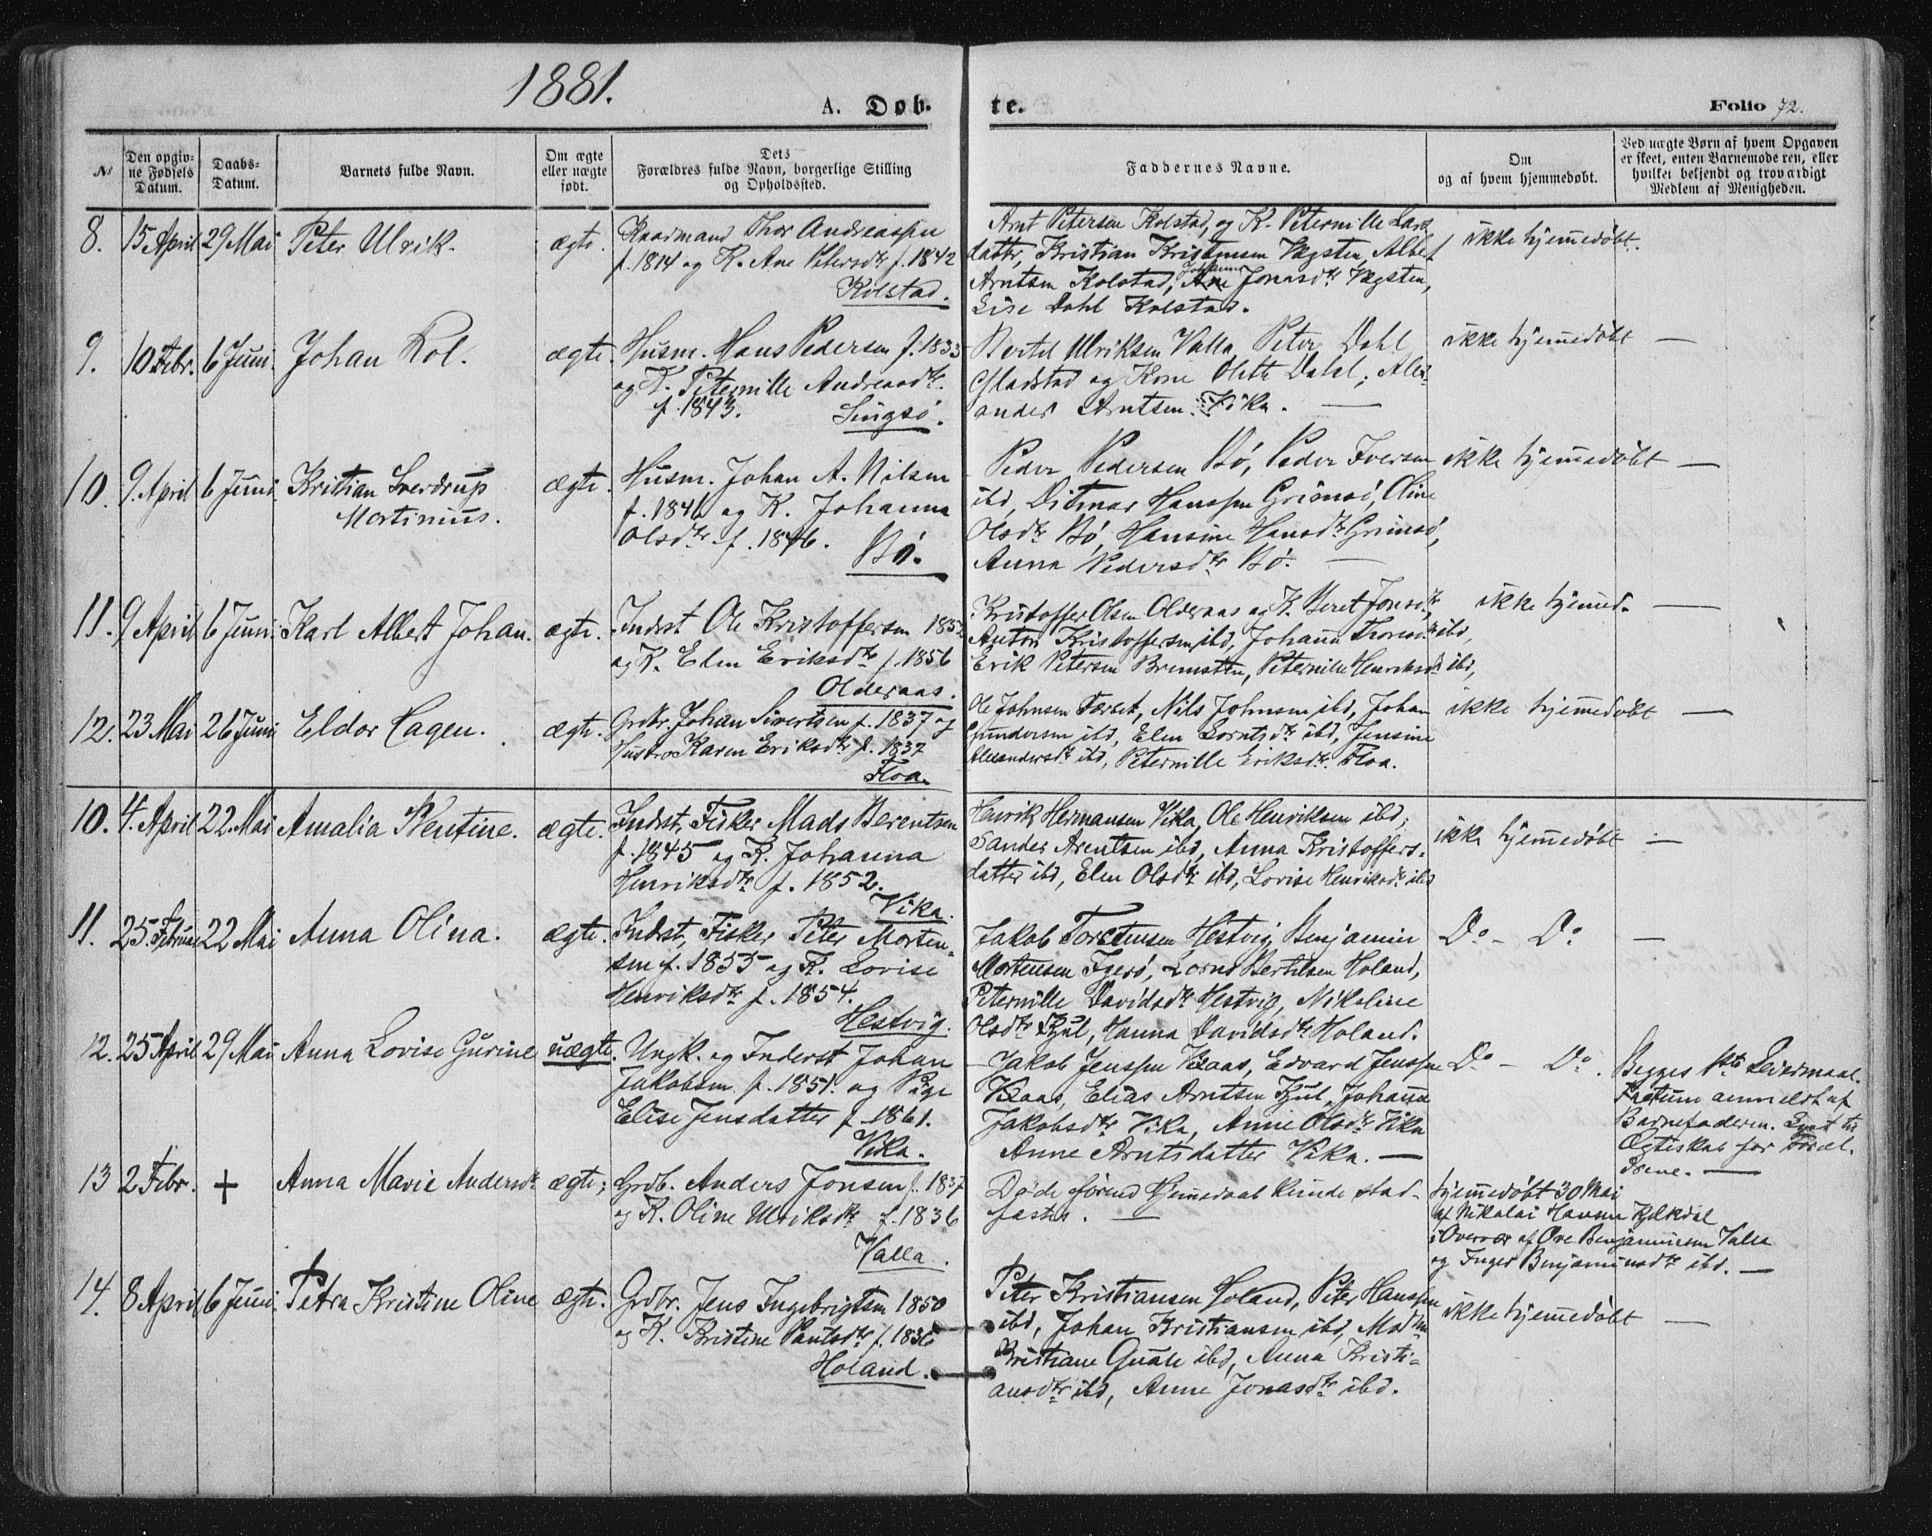 1881.
A. Døb-
te.
Folio 72.
№
Den opgiv-
ne Fødsels
Datum.
Daabs-
Datum.
Barnets fulde Navn.
Om ægte
eller uægte
født.
Dets
Forældres fulde Navn, borgerlige Stilling
og Opholdssted.
Faddernes Navne.
Om
og af hvem hjemmedøbt.
Ved uægte Børn af hvem Opgaven
er skeet, enten Barnemoderen, eller
hvilket bekjendt og troværdigt
Medlem af Menigheden.
8. 15 April 29 Mai Peter Ulrik. ægte.
Kaarmand Thor Andreassen
f. 1814 og K. Ane Petersdtr f. 1842
Kolstad.
Arnt Petersen Kolstad, og K. Peternille Lars
datter, Kristian Kristensen Vægsten, Albert
Johanna
Arntsen Kolstad, Ane Jonasdtr Vægsten,
Lise Dahl Kolstad.
ikke hjemmedøbt.
9. 10 Febr. 6 Juni. Johan Rol. ægte.
Husm. Hans Pedersen f. 1833
og K. Peternille Andreasdtr.
f. 1843. Lingsø.
Bertel Ulriksen Valla, Peter Dahl
Gladstad og Kone Olette Dahl, Alex-
ander Arntsen Vika. —
ikke hjemmedøbt —
10. 9 April 6 Juni Kristian Sverdrup
Mortinius. ægte.
Husm. Johan A. Nilsen
f. 1846 og K. Johanna
Olsdtr f. 1846.
Bø.
Peder Pedersen Bø, Peder Iversen
ibd, Ditmar Hanssen Grimsø, Oline
Olsdtr Bø, Hansine Hansdtr Grimsø,
Anna Pedersdtr Bø. —
ikke hjemmedøbt —
11. 9 April 6 Juni. Karl Albert Johan. ægte.
Inderst Ole Kristoffersen 1852
og K. Elen Eriksdtr f. 1856
Olderaas.
Kristoffer Olsen Olderaas og K. Beret Jonsdtr,
Anton Kristoffersen ibd, Johanna Thomasdtr ibd,
Erik Petersen Bremsten, Peternille Henriksdtr ibd,
ikke hjemmed. —
12. 23 Mai 26 Juni Eldor Hagen. ægte.
Grdbr. Johan Sivertsen f. 1837 og
Hustro Karen Eriksdtr f. 1837
Floa.
Ole Johnsen Forset, Nils Johnsen ibd, Johan
Gundersen ibd, Elen Lorntsdtr ibd, Jensine
Alexandersdtr ibd, Peternille Eriksdtr. Floa.
ikke hjemmedøbt —
10. 4. April 22. Mai Amalia Wentine. ægte.
Inderst, Fisker Mads Berentsen
f. 1845 og K. Johanna
Henriksdtr f. 1852.
Vika.
Henrik Hermansen Vika, Ole Henriksen ibd,
Sander Arentsen ibd, Anna Kristoffers-
datter ibd, Elen Olsdtr ibd, Lovise Henriksdtr ibd
ikke hjemmedøbt —
11. 25 Februar 22 Mai Anna Olina. ægte.
Inderst, Fisker Peter Morten-
sen f. 1853 og K. Lovise
Henriksdtr f. 1854.
Hestvig.
Jakob Torstensen Hestvig, Benjamin
Mortensen Igerø, Lornts Bertelsen Holand,
Peternille Davidsdtr Hestvig, Nikoline
Olsdtr Kjul, Hanna Davidsdtr Holand.
Do – Do —
12. 25 April 29 Mai Anna Lovise Gurine uægte.
Ungk. og Inderst Johan
Jakobsen f. 1851. og Pige
Elise Jensdatter f. 1861.
Vika.
Jakob Jenssen Kaas, Edvard Jenssen
Kaas, Elias Arntsen Kjul, Johanna
Jakobsdtr Vika, Anne Olsdtr Vika
Anne Arntsdatter Vika. —
Do – Do.
Begges 1ste Leiermaal.
Factum anmeldt af
Barnefaderen.
Ægteskab for Foræl-
drene. —
13 2 Febr. + Anna Marie Andersdtr ægte;
Grdb. Anders Jonsen f. 1837
og K. Oline Ulriksdtr f. 1836
Valla.
Døde førend Hjemmedaab kunde stad-
fæstes. —
hjemmedøbt 30 Mai
af Nikolai Hansen
i Overvær af Ove Benjaminsen Valla
og Inger Benjaminsdtr ibd. —
14. 8 April 6 Juni. Petra Kristine Oline ægte.
Grdbr. Jens Ingebrigtsen 1850
og K. Kristine Paulsdtr f. 1836
Holand.
Peter Kristiansen Holand, Peter Hanssen
ibd, Johan Kristiansen ibd, Madm
Kristiane Quale ibd, Anna Kristi-
ansdtr ibd, Anne Jonasdtr ibd.
ikke hjemmedøbt —